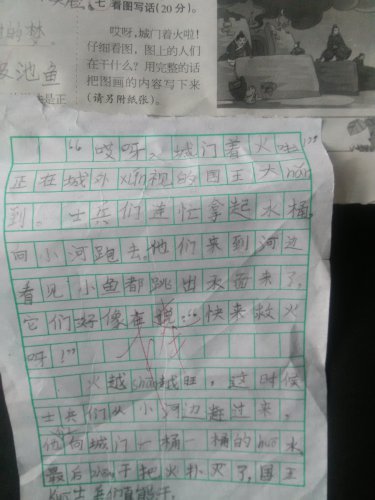 七 看图写话(20分)。
哎呀,城门着火啦!
仔细看图,图上的人们
在干什么?用完整的话
把图画的内容写下来
(请另附纸张)。
的梦
池鱼
是正
“哎呀、城门着火啦”
正在城外xún视的国王大hǎn
到。士兵们连忙拿起水桶
向小河跑去。他们来到河边
看见小鱼都跳出水面来了,
它们好像在说:“快来救火
呀!”
火越shāo越旺,这时候
士兵们从小河边赶过来,
他向城门一桶一桶的 水
最后 于把火扑灭了,国王
士兵们